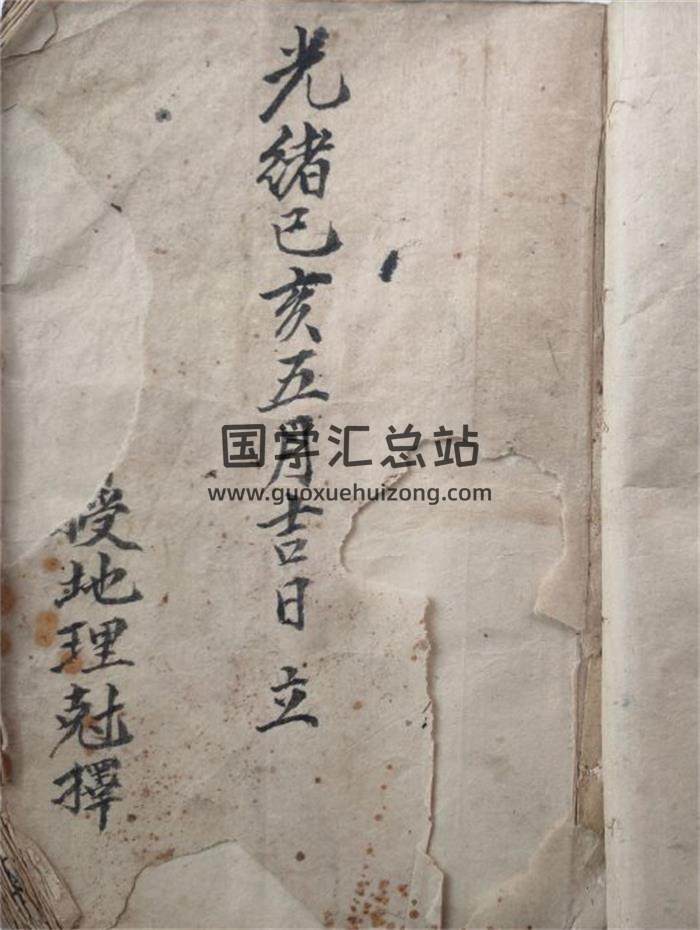 光緒己亥五月吉日 立
授地理尅擇
国学汇总站
www.guoxuehuizong.com